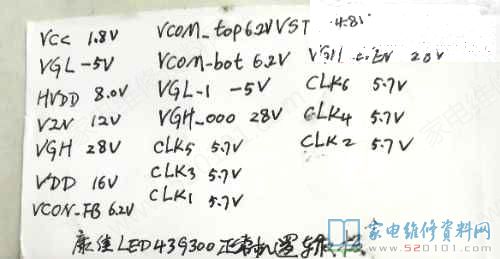 VCC 1.8V
VGL -5V
HVDD 8.0V
VIN 12V
VGH 28V
VDD 16V
VCON-FB 6.2V
VCOM_top 6.2V VST
VCOM-bot 6.2V
VGL-1 -5V
VGH_ooo 28V
CLK5 5.7V
CLK3 5.7V
CLK1 5.7V
CLK6 5.7V
CLK4 5.7V
CLK2 5.7V
康佳LED43G300正常
家电维修资料网
www.520101.com